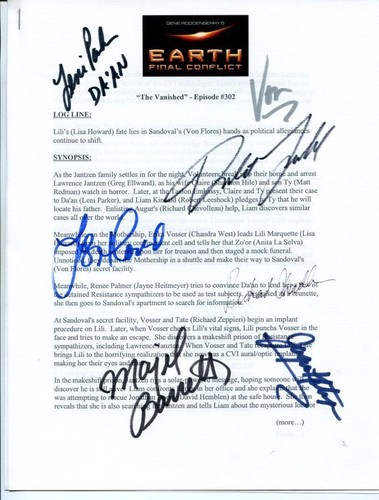 GENE RODDENBERRY'S
EARTH
FINAL CONFLICT
Leni Parker
DA'AN
Von
"The Vanished" - Episode #302
LOG LINE:
Lili's (Lisa Howard) fate lies in Sandoval's (Von Flores) hands as political allegiances
continue to shift.
SYNOPSIS:
As the Jantzen family settles in for the night, Volunteers break their home and arrest
Lawrence Jantzen (Greg Ellwand), as his wife Claire (Sharon Hile) and son Ty (Matt
Redman) watch in horror. Later, at the Taelon Embassy, Claire and Ty present their case
to Da'an (Leni Parker), and Liam Kincaid (Robert Leeshock) pledges to Ty that he will
locate his father. Enlisting Augur's (Richard Chevolleau) help, Liam discovers similar
cases all over the world.
Meanwhile, on the Mothership, Vosser (Chandra West) leads Lili Marquette (Lisa
Howard) cell and tells her that Zo'or (Anita La Selva)
imposed death upon her for treason and then staged a mock funeral.
the Mothership in a shuttle and make their way to Sandoval's
(Von Flores) secret facility.
Lisa Howard
Meanwhile, Renee Palmer (Jayne Heitmeyer) tries to convince Da'an to lend
of detained Resistance sympathizers to be used as test subjects.
she then goes to Sandoval's apartment to search for information.
At Sandoval's secret facility, Vosser and Tate (Richard Zeppieri) begin an implant
procedure on Lili. Later, when Vosser checks Lili's vital signs, Lili punches Vosser in the
face and tries to make an escape. She discovers a makeshift prison of Resistance
sympathizers, including Lawrence
brings Lili to the horrifying a CVI aural/optic
making her their eyes and
Majel
Barrett
In the makeshift hoping someone
discover he is still Liam and explains that she
was attempting to rescue Jonathan (David Hemblen) at the safe She then
reveals that she is also searching for Jantzen and tells Liam about the mysterious
(more…)